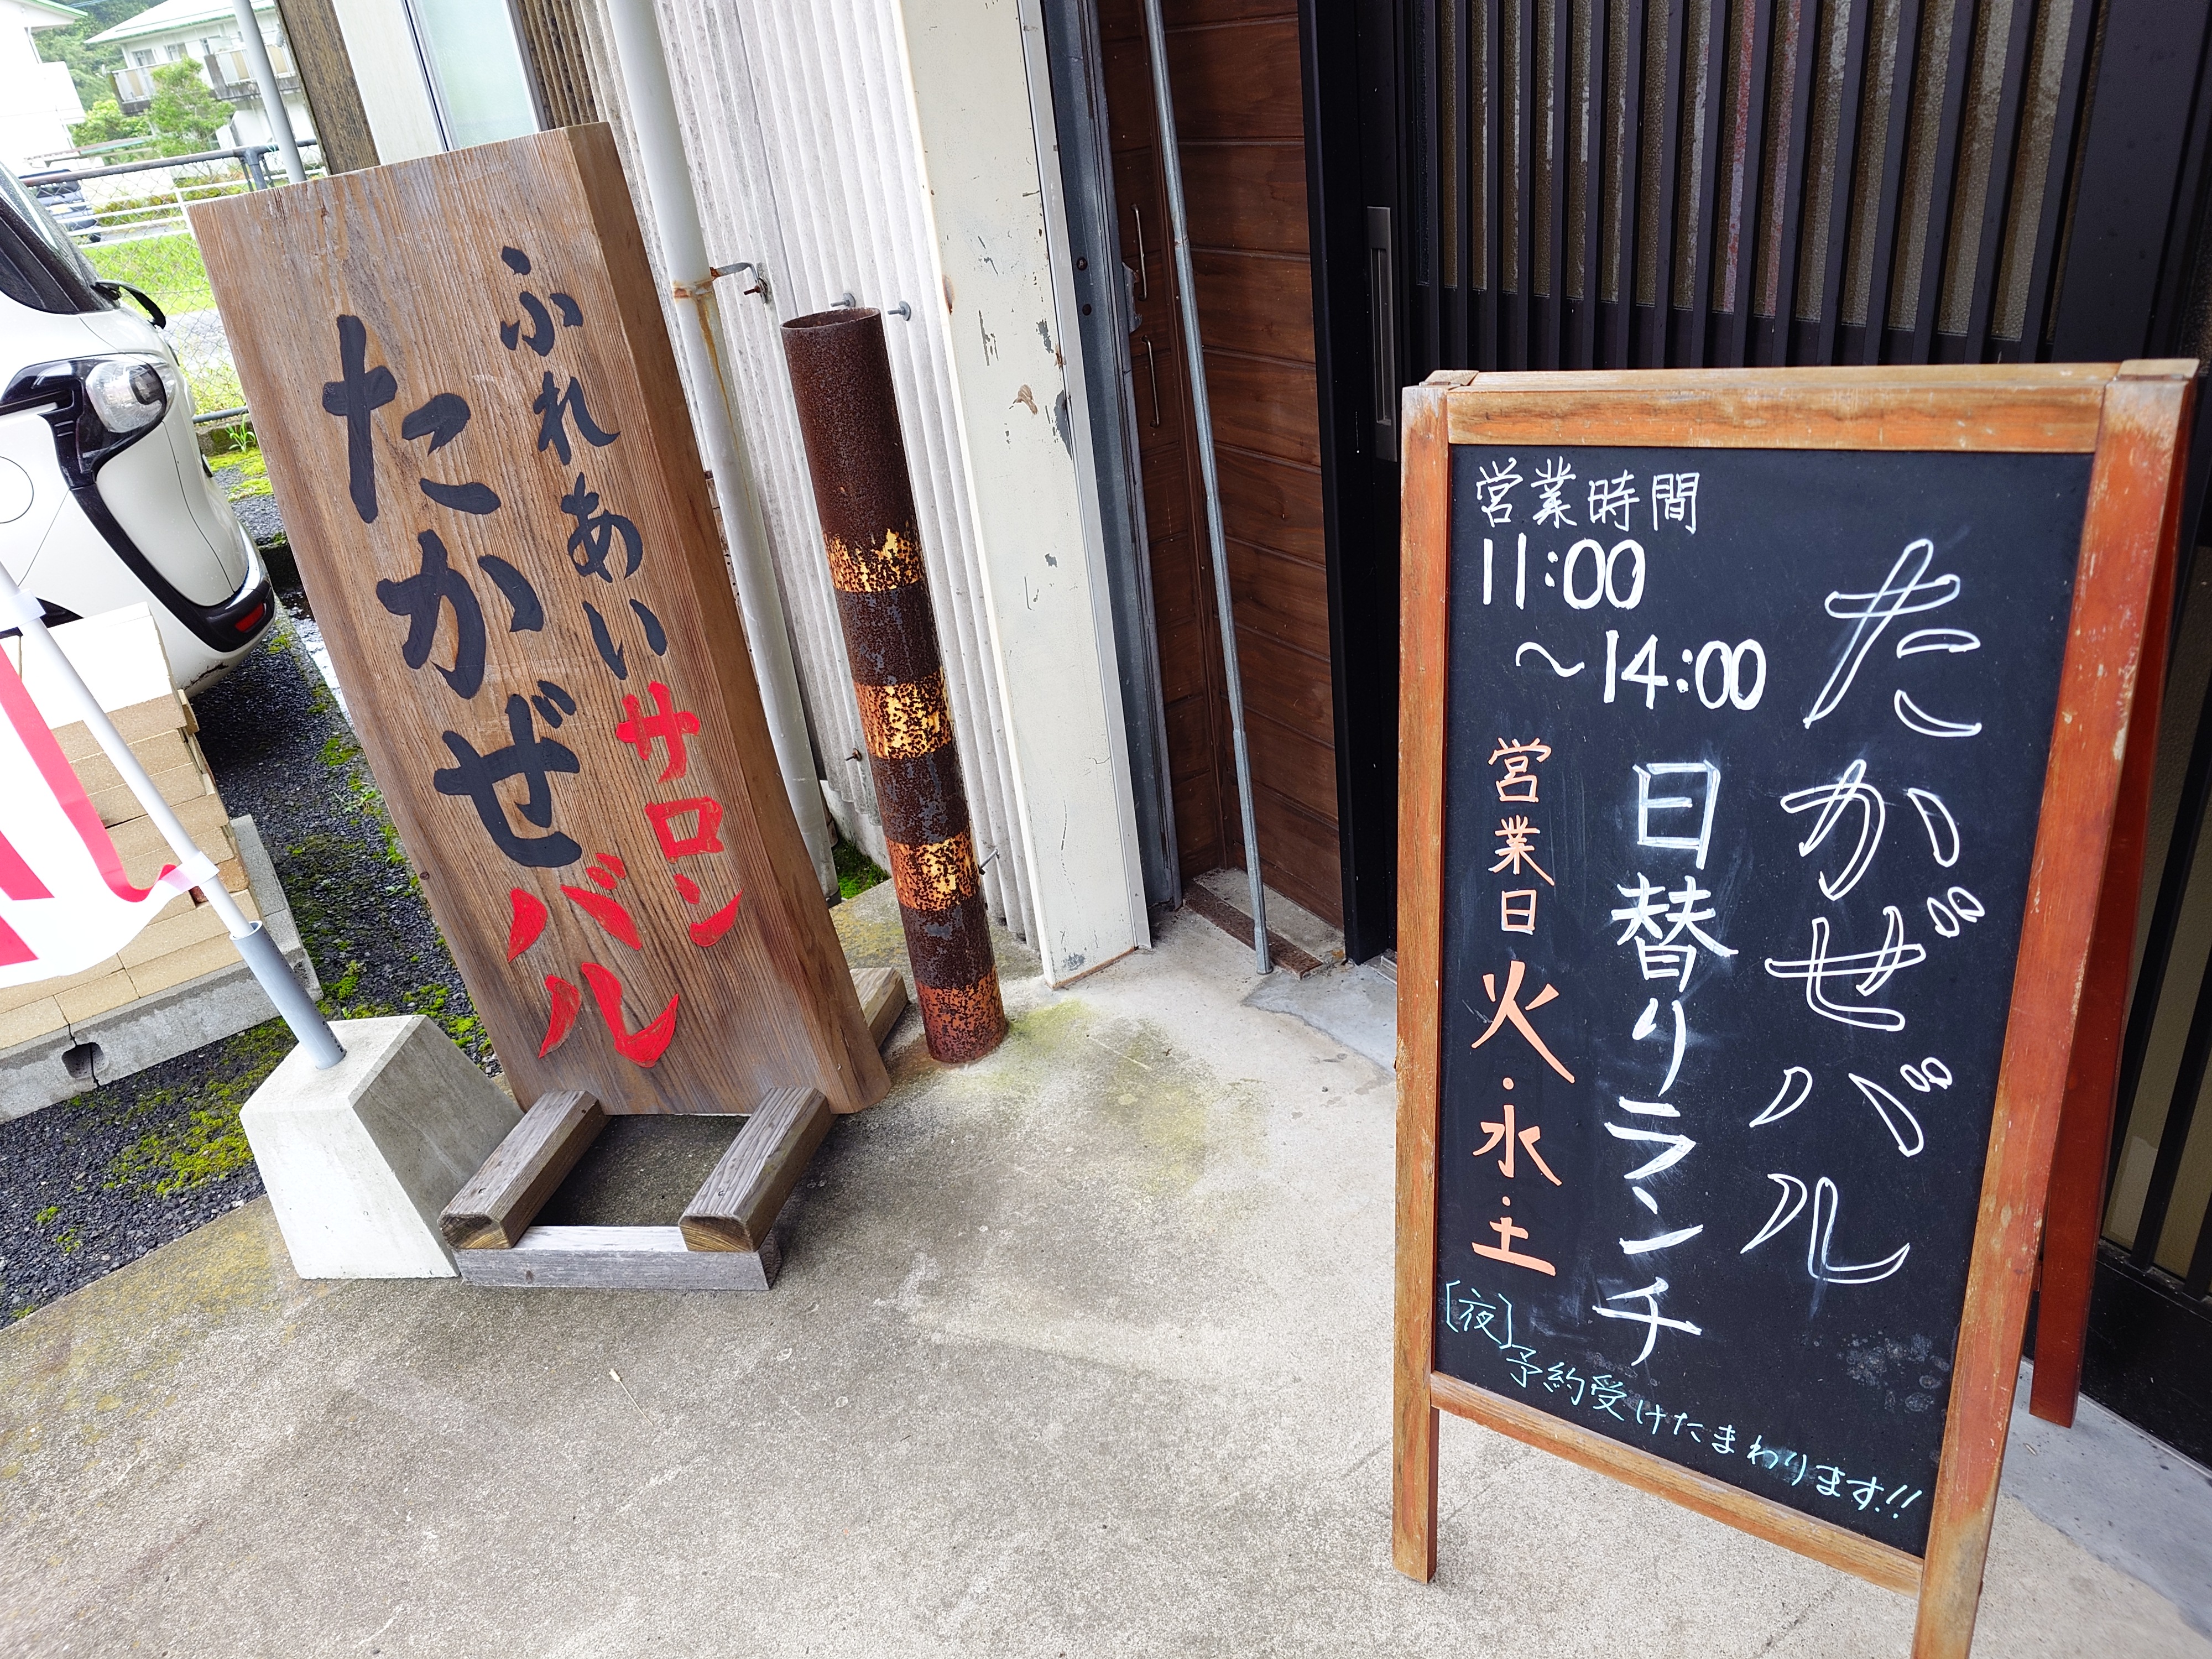 ふれあいサロン
たかぜバル
たかぜバル
日替りランチ
営業時間
11:00
～14:00
営業日 火・水・土
〔夜〕
予約受けたまわります!!